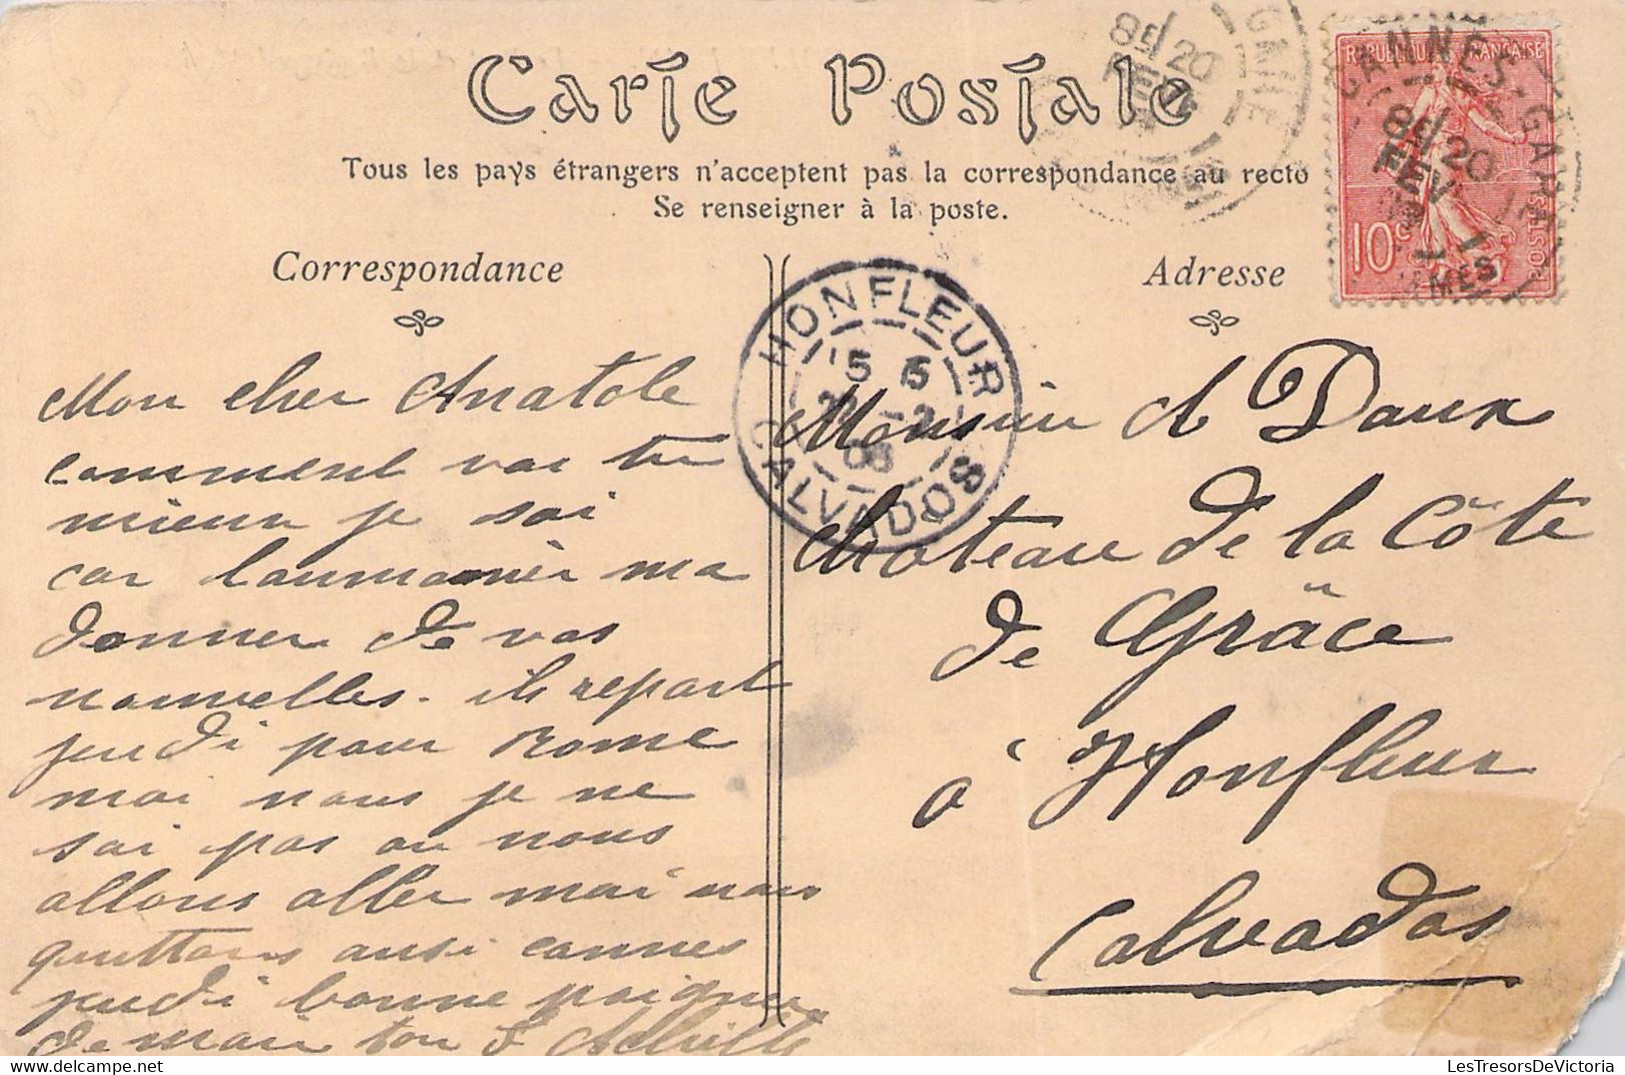 Carte Postale
Tous les pays étrangers n'acceptent pas la correspondance au recto
Se renseigner à la poste.
Correspondance
Adresse
REPUBLIQUE FRANÇAISE
10c
POSTES
CANNES-GARE
8E 20
FEV
GARE
8E 20
FEV
HONFLEUR
15 6
22 -2
06
CALVADOS
Mon cher Anatole
comment vas tu
mieux je sai
car laumonier ma
donner de vos
nouvelles. ils repart
jeudi pour Rome
mai nous je ne
sai pas ou nous
allons aller mai nous
quittons ausi cannes
jeudi bonne poignee
de main ton f Achille
Monsieur A Daux
chateau de la Côte
de Grâce
à Honfleur
Calvados
LesTresorsDeVictoria